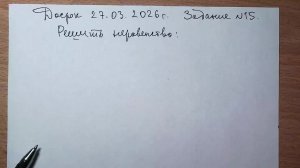 Досрок 27.03.2026г. Задание №15.
Решить неравенство: